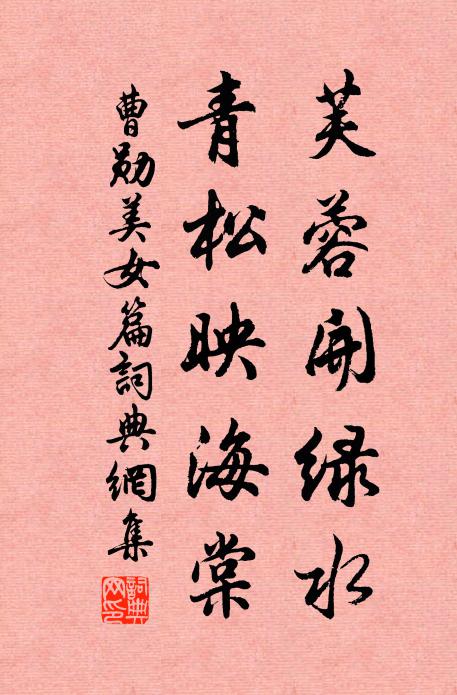 芙蓉開緑水
青松映海棠
曹勛美女篇詞典網集
詞典網印